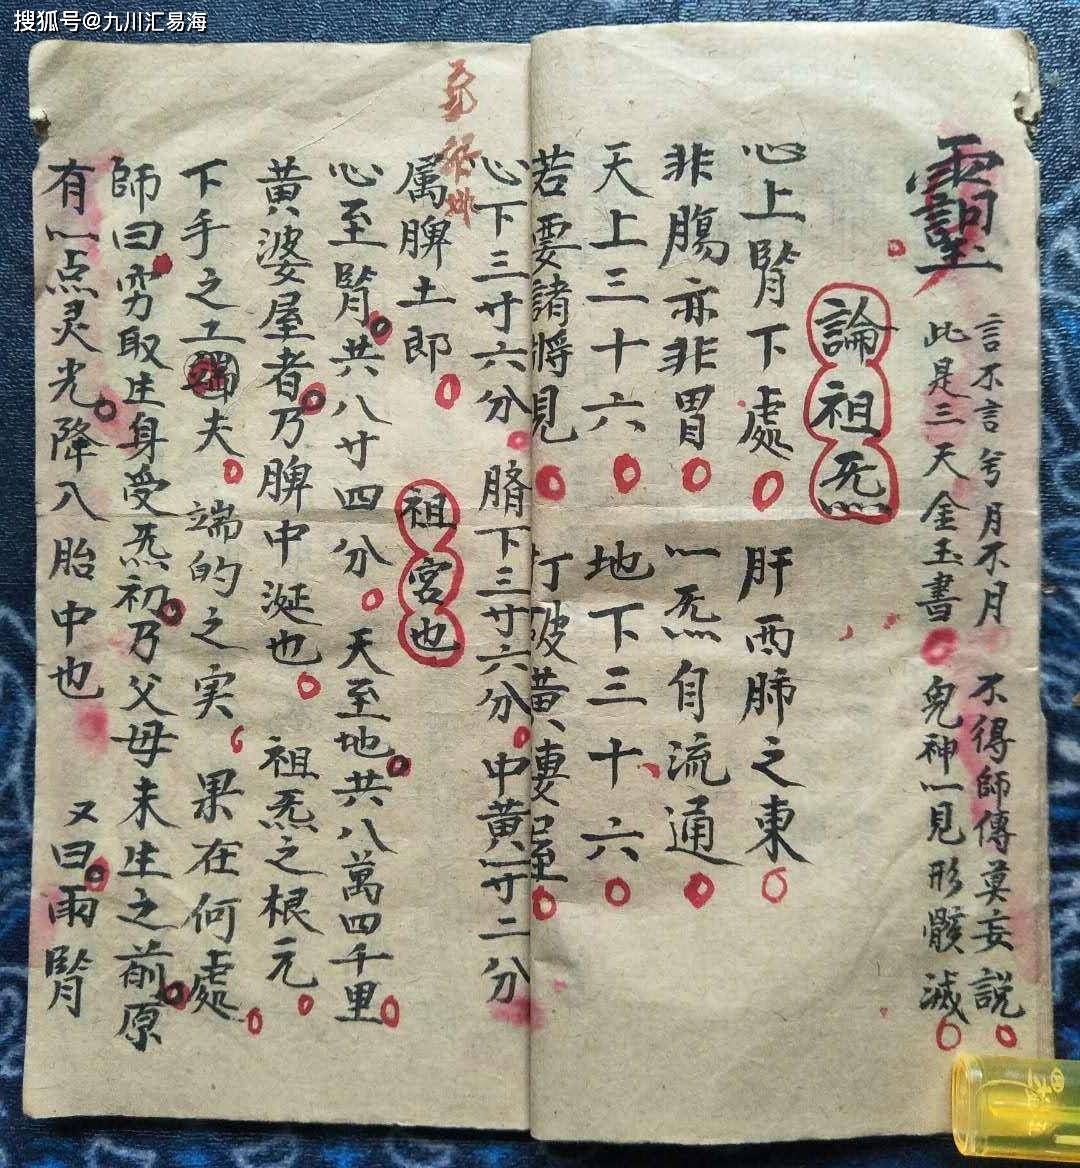 搜狐号@九川汇易海
言不言兮月不月 不得師傳莫妄説
此是三天金玉書 鬼神一見形骸滅
論祖炁
心上腎下處 肝西肺之東
非腸亦非胃 一炁自流通
天上三十六 地下三十六
若要諸將見 打破黃婆屋
心下三寸六分 臍下三寸六分 中黃一寸二分
属脾土郎 祖宮也
心至腎共八寸四分 天至地共八萬四千里
黃婆屋者乃脾中涎也 祖炁之根元
下手之工夫 端的之实 果在何處
師曰穷取生身受炁初乃父母未生之前原
有一点灵光降入胎中也 又曰兩腎